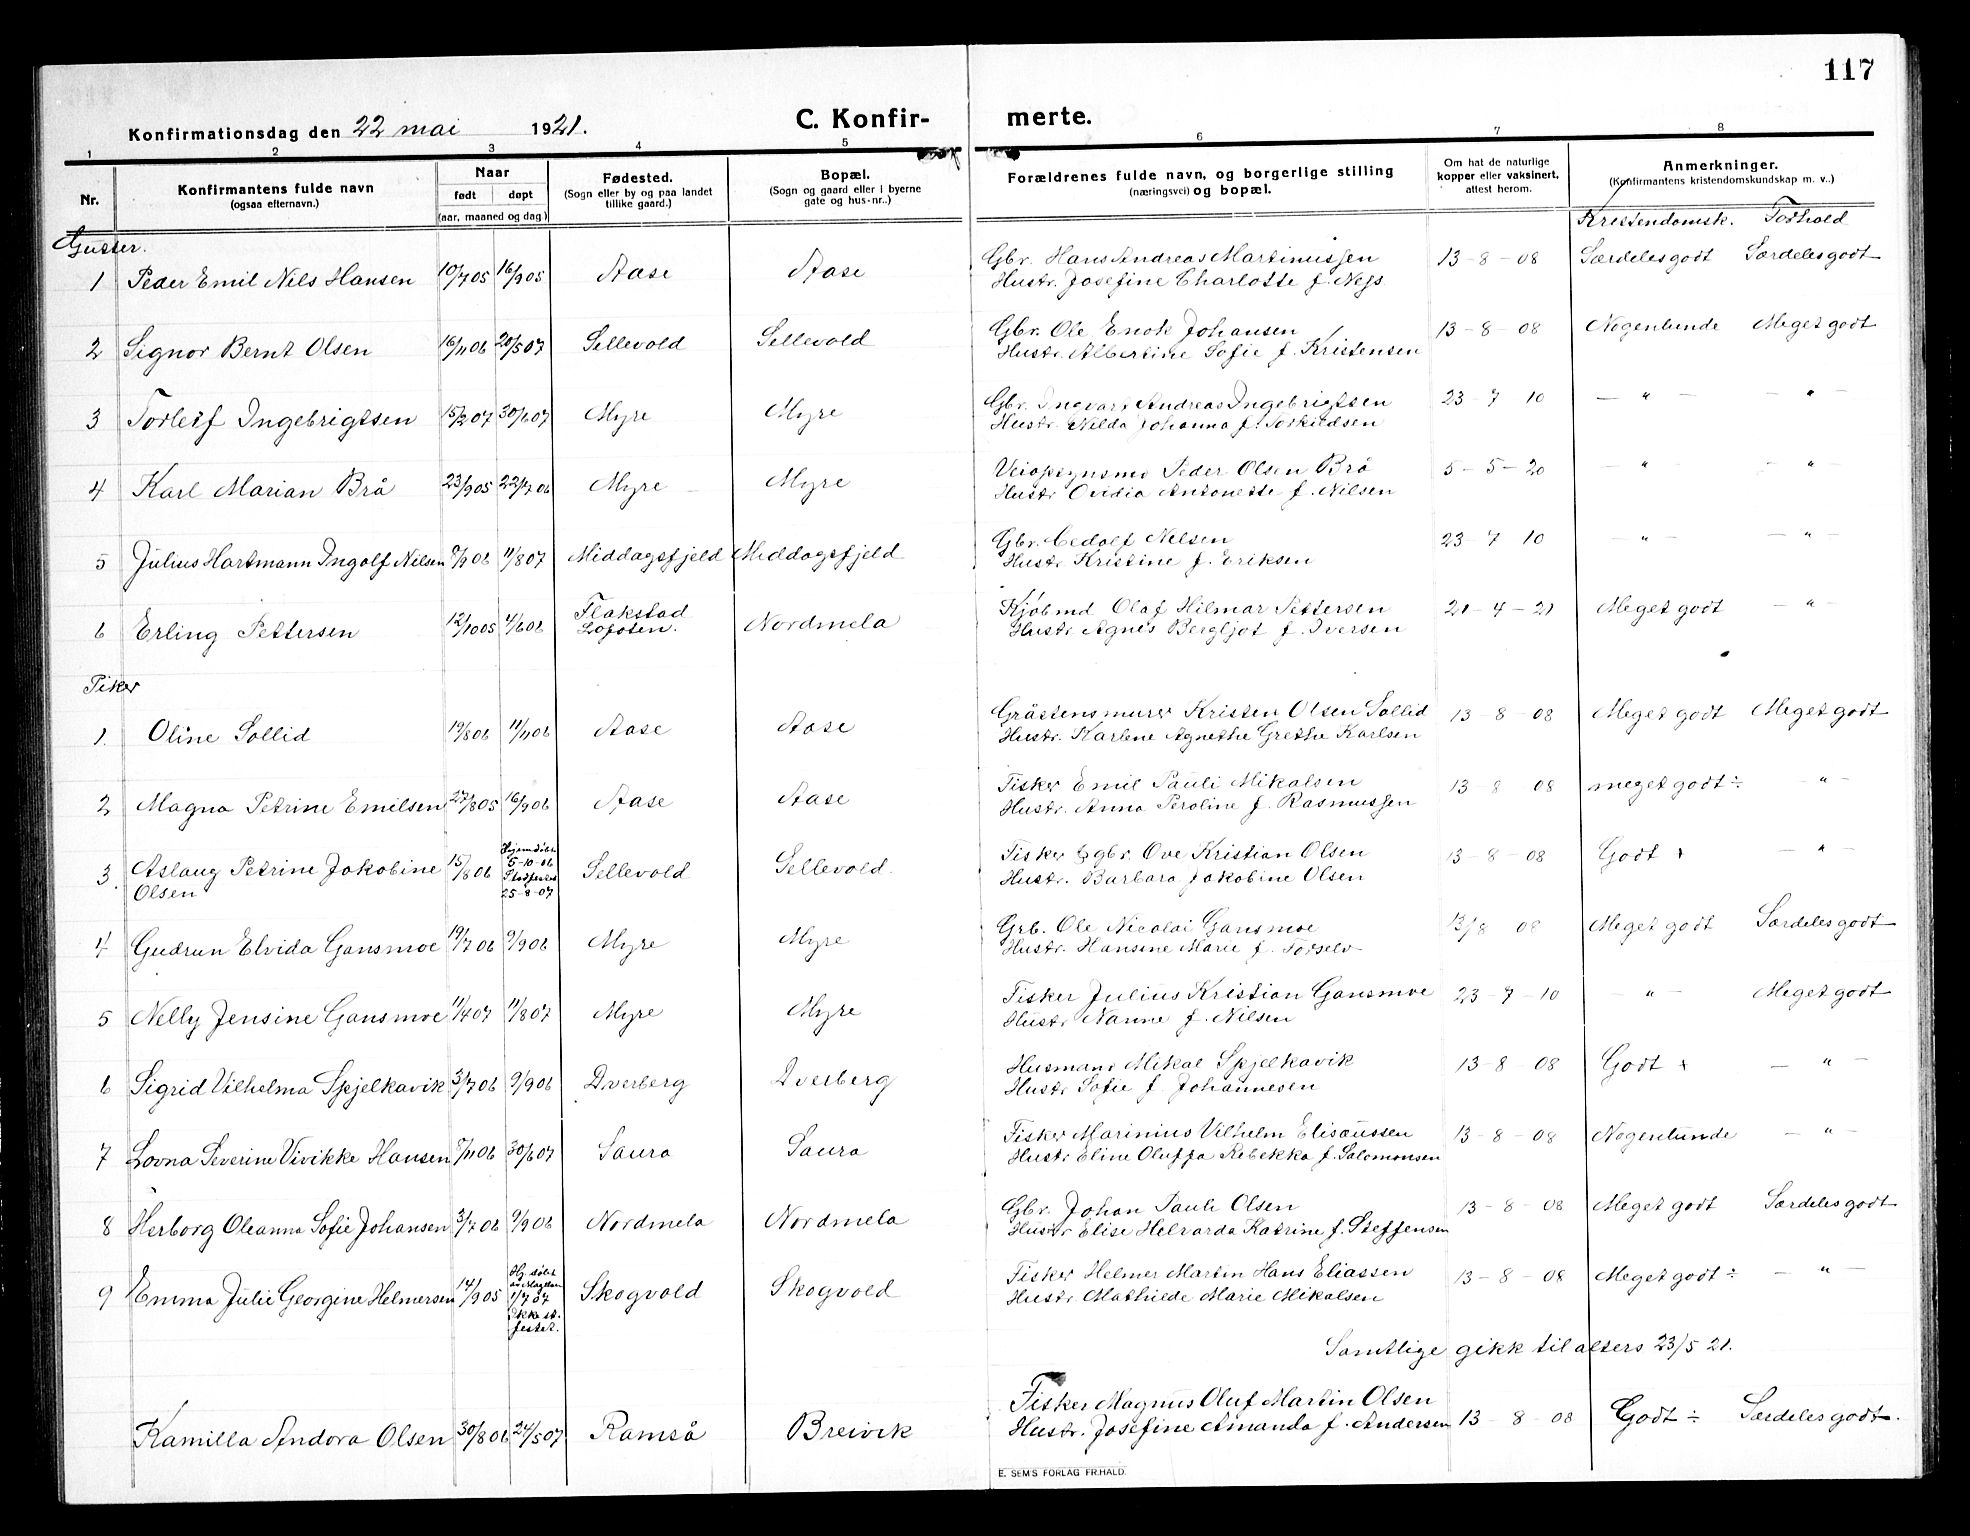 117
Konfirmationsdag den 22 mai 1921.
C. Konfirmerte.
1 2 3 4 5 6 7 8
Nr.
Konfirmantens fulde navn
(ogsaa efternavn.)
Naar
født døpt
(aar, maaned og dag.)
Fødested.
(Sogn eller by og paa landet
tillike gaard.)
Bopæl.
(Sogn og gaard eller i byerne
gate og hus-nr..)
Forældrenes fulde navn, og borgerlige stilling
(næringsvei) og bopæl.
Om hat de naturlige
kopper eller vaksinert,
attest herom.
Anmerkninger.
(Konfirmantens kristendomskundskap m. v..)
Kristendomsk. Forhold
Gutter.
1 Peder Emil Nils Hansen 10/7 05 16/9 05 Aase Aase Gbr. Hans Andreas Martinussen 13-8-08 Særdeles godt Særdeles godt
Hustr. Josefine Charlotte f. Ness
2 Signor Bernt Olsen 16/11 06 20/5 07 Sellevold Sellevold Gbr. Ole Enok Johansen 13-8-08 Nogenlunde Meget godt
Hustr. Albertine Sofie f. Kristensen
3 Torleif Ingebrigtsen 15/2 07 30/6 07 Myre Myre Gbr. Ingvart Andreas Ingebrigtsen 23-7 10 — " — — " —
Hustr. Nilda Johanna f. Torkildsen
4 Karl Marian Brå 23/9 05 22/7 06 Myre Myre Peder Olsen Brå 5-5-20 — " — — " —
Hustr. Ovidia Antonette f. Nilsen
5 Julius Hartmann Ingolf Nilsen 8/9 06 11/8 07 Middagsfjeld Middagsfjeld Gbr. Cedolf Nilsen 23-7 10 — " — — " —
Hustr. Kristine f. Eriksen
6 Erling Pettersen 12/10 05 4/6 06 Flakstad Lofoten. Nordmela Kjøbmd Olaf Hilmar Pettersen 21-4-21 Meget godt — " —
Hustr. Agnes Bergljot f. Iversen
Piker
1. Oline Sollid 19/8 06 11/11 06 Aase Aase Gråstensmurer Kristen Olsen Sollid 13-8-08 Meget godt Meget godt
Hustr. Karlene Agnethe Grethe Karlsen
2 Magna Petrine Emilsen 27/8 05 16/9 06 Aase Aase Fisker Emil Pauli Mikalsen 13-8 08 meget godt ÷ — " —
Hustr. Anna Peroline f. Rasmussen
3. Aslaug Petrine Jakobine Olsen 15/8 06 Hjemdøbt 5-10-06 25-8-07 Sellevold Sellevold. Fisker & gbr. Ove Kristian Olsen 13-8-08 Godt + — " —
Hustr. Barbara Jakobine Olsen
4 Gudrun Elvida Gansmoe 19/7 06 9/9 06 Myre Myre Grb. Ole Nicolai Gansmoe 13/8 08 Meget godt Særdeles godt
Hustr. Hansine Marie f. Torselv
5 Nelly Jensine Gansmoe 11/4 07 11/8 07 Myre Myre Fisker Julius Kristian Gansmoe 23-7-10 — " — Meget godt
Hustr. Nanne f. Nilsen
6 Sigrid Vilhelma Spjelkavik 3/7 06 9/9 06 Dverberg Dverberg Husmand Mikal Spjelkavik 13-8-08 Godt + — " —
Hustr. Sofie f. Johannesen
7 Lovna Severine Vivikke Hansen 8/11 06 30/6 07 Saura Saura Fisker Marinius Vilhelm Elisæussen 13-8-08 Nogenlunde — " —
Hustr. Eline Oluffa Rebekka f. Salomonsen
8 Herborg Oleanna Sofie Johansen 3/7 06 9/9 06 Nordmela Nordmela Gbr. Johan Pauli Olsen 13-8-08 Meget godt Særdeles godt
Hustr. Elise Helvarda Katrine f. Steffensen
9 Emma Julie Georgine Helmersen 14/9 05 Hj. døbt 1/7 07 Ikke st. festet. Skogvold Skogvold Fisker Helmer Martin Hans Eliassen 13-8-08 Meget godt ÷ — " —
Hustr. Mathilde Marie Mikalsen
Samtlige gikk til alters 23/5 21.
Kamilla Andora Olsen 30/8 06 24/5 07 Ramså Breivik Fisker Magnus Oluf Martin Olsen 13-8-08 Godt ÷ Særdeles godt.
Hustr. Josefine Amanda f. Andersen
E. SEM'S FORLAG FR.HALD.